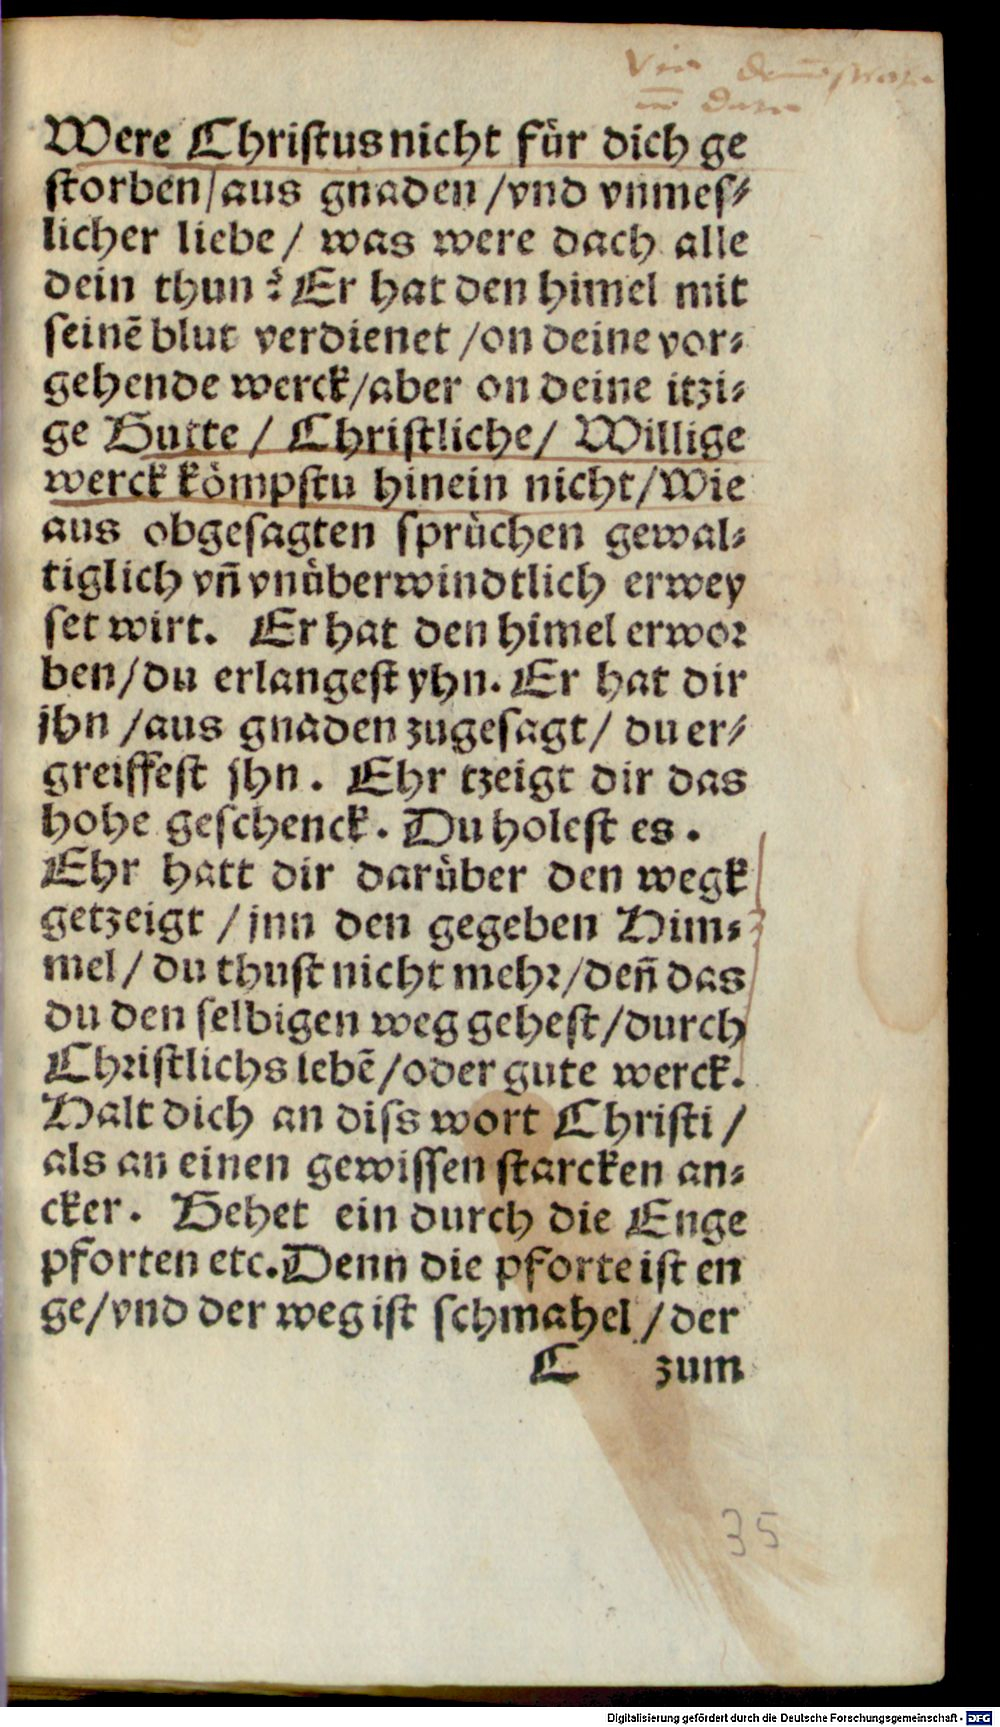 Were Christus nicht für dich ge
storben/aus gnaden /vnd vnmeſ⸗
licher liebe/ was were dach alle
dein thun? Er hat den himel mit
ſeinē blut verdienet /on deine vor⸗
gehende werck/aber on deine itzi⸗
ge Gutte/ Chriſtliche/ Willige
werck kömpſtu hinein nicht/Wie
aus obgeſagten ſprüchen gewal⸗
tiglich vn̄ vnüberwindtlich erwey
ſet wirt. Er hat den himel erwor
ben/du erlangeſt yhn. Er hat dir
jhn /aus gnaden zugeſagt/ du er⸗
greiffeſt jhn. Ehr tzeigt dir das
hohe geſchenck. Du holeſt es.
Ehr hatt dir darüber den wegk
getzeigt /jnn den gegeben Him⸗
mel/ du thuſt nicht mehr/den̄ das
du den ſelbigen weg geheſt/durch
Chriſtlichs lebē/oder gute werck.
Halt dich an diſs wort Chriſti/
als an einen gewiſſen ſtarcken an⸗
cker. Gehet ein durch die Enge
pforten etc. Denn die pforte iſt en
ge/vnd der weg iſt ſchmahel/der
C zum
35
Digitalisierung gefördert durch die Deutsche Forschungsgemeinschaft - DFG